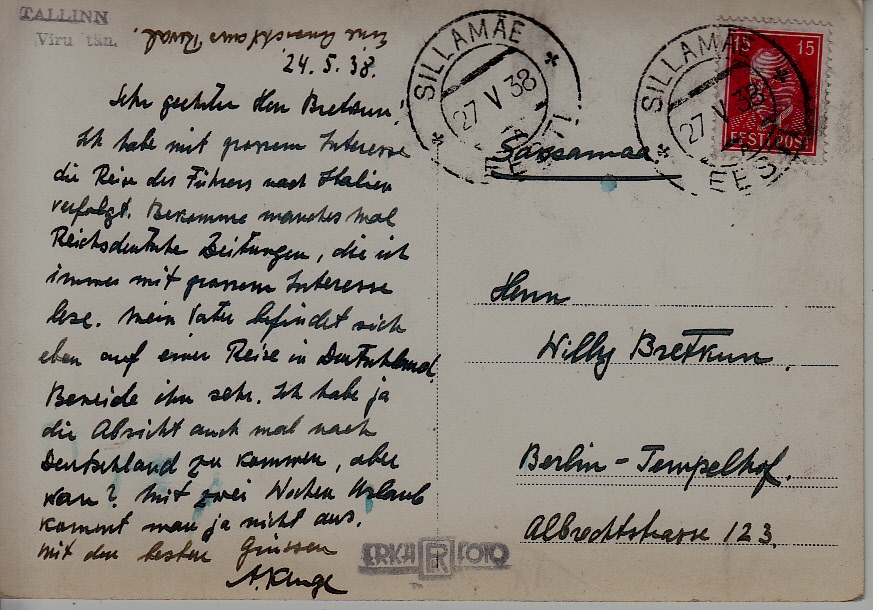 TALLINN
Viru tän.
Eine Ansicht aus Reval.
24.5.38.
Sehr geehrter Herr Bretkun!
Ich habe mit grossem Interesse
die Reise des Führers nach Italien
verfolgt. Bekomme manches mal
Reichsdeutsche Zeitungen, die ich
immer mit grossem Interesse
lese. Mein Vater befindet sich
eben auf einer Reise in Deutschland.
Beneide ihn sehr. Ich habe ja
die Absicht auch mal nach
Deutschland zu kommen, aber
wann? Mit zwei Wochen Urlaub
kommt man ja nicht aus.
Mit den besten Grüssen
A. Kluge
SILLAMÄE
27 V 38
EESTI
SILLAMÄE
27 V 38
EESTI
15 15
EESTI POST
Saksamaa
Herrn
Willy Bretkun.
Berlin-Tempelhof.
Albrechtstrasse 123.
ERKA FOTO